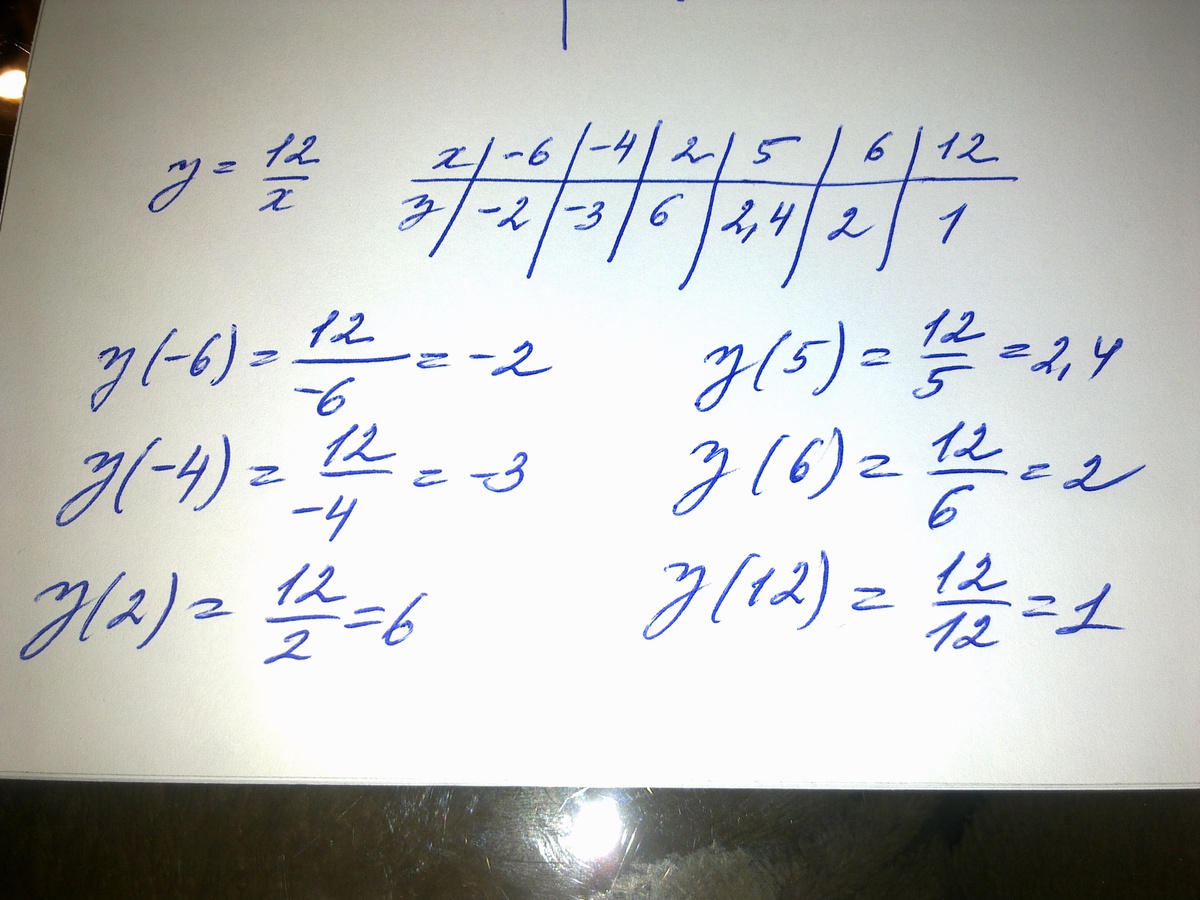 y = 12/x
x | -6 | -4 | 2 | 5 | 6 | 12
y | -2 | -3 | 6 | 2,4 | 2 | 1
y(-6) = 12/-6 = -2
y(5) = 12/5 = 2,4
y(-4) = 12/-4 = -3
y(6) = 12/6 = 2
y(2) = 12/2 = 6
y(12) = 12/12 = 1